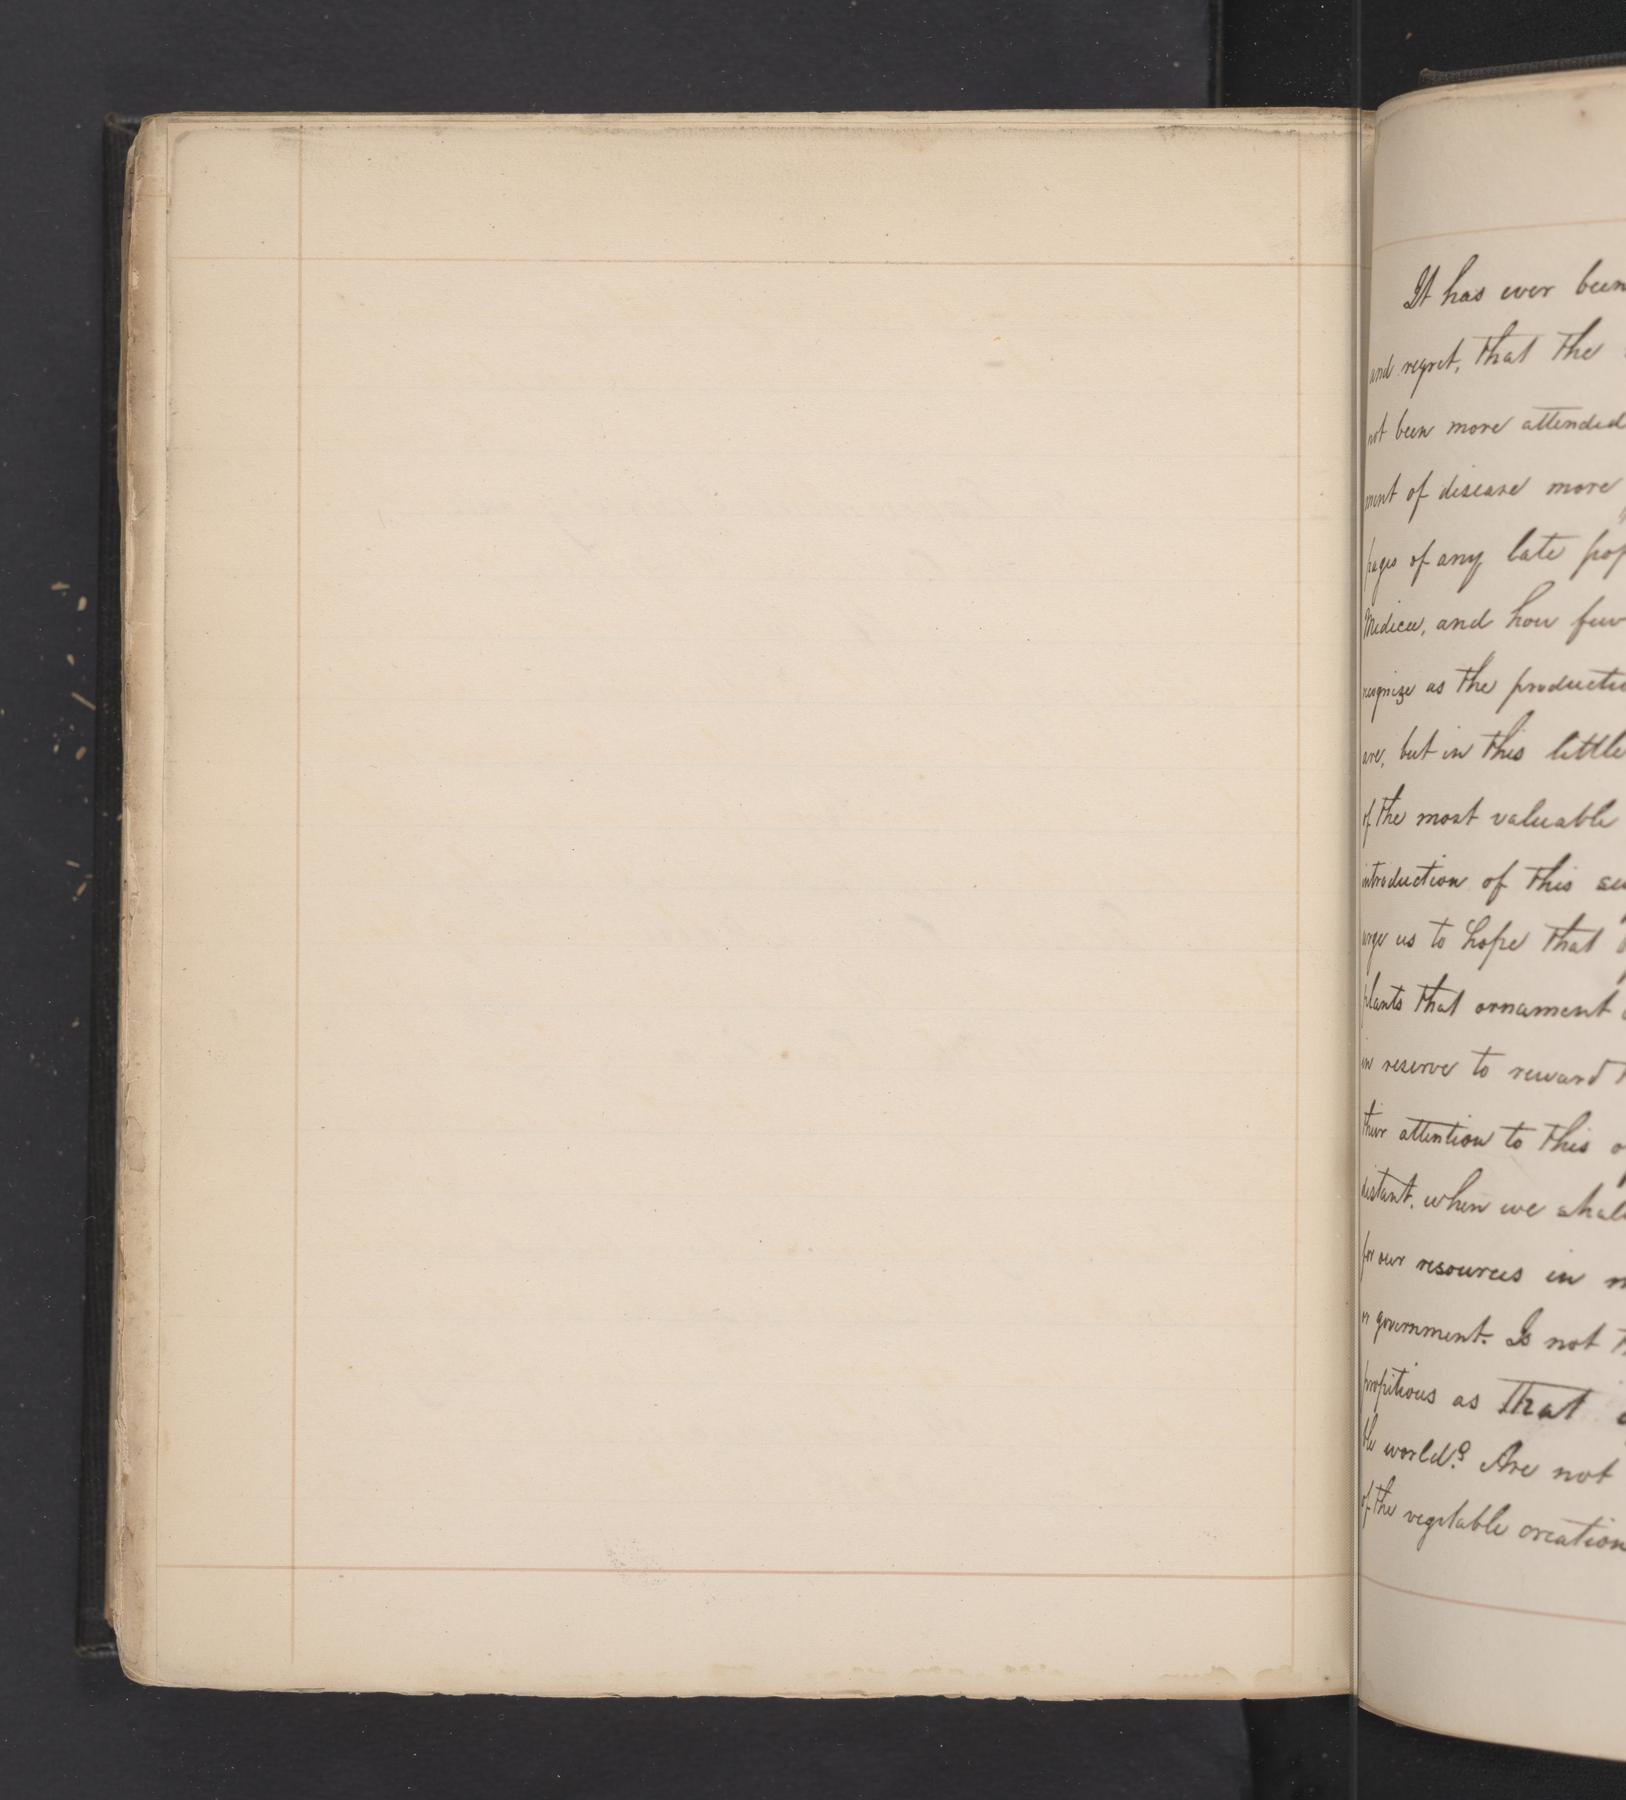 It has ever been
and regret, that the
not been more attended
ment of disease more
pages of any late pop
Medica, and how few
recognize as the producti
are, but in this little
of the most valuable
introduction of this su
urge us to hope that
plants that ornament
in reserve to reward
their attention to this
distant, when we shall
for our resources in
or government. Is not
propitious as that
the world? Are not
of the vegetable creation